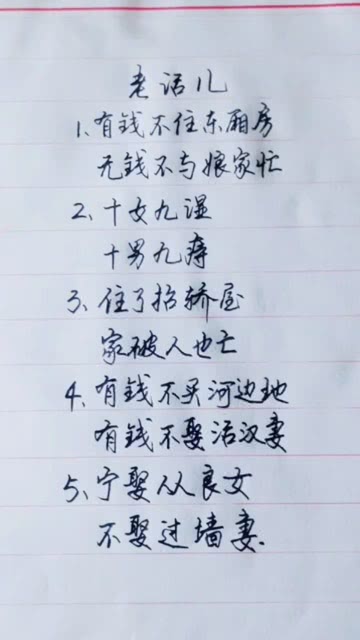 老话儿
1、有钱不住东厢房
无钱不与娘家忙
2、十女九湿
十男九痔
3、住了抬轿屋
家破人也亡
4、有钱不买河边地
有钱不娶活汉妻
5、宁娶从良女
不娶过墙妻.